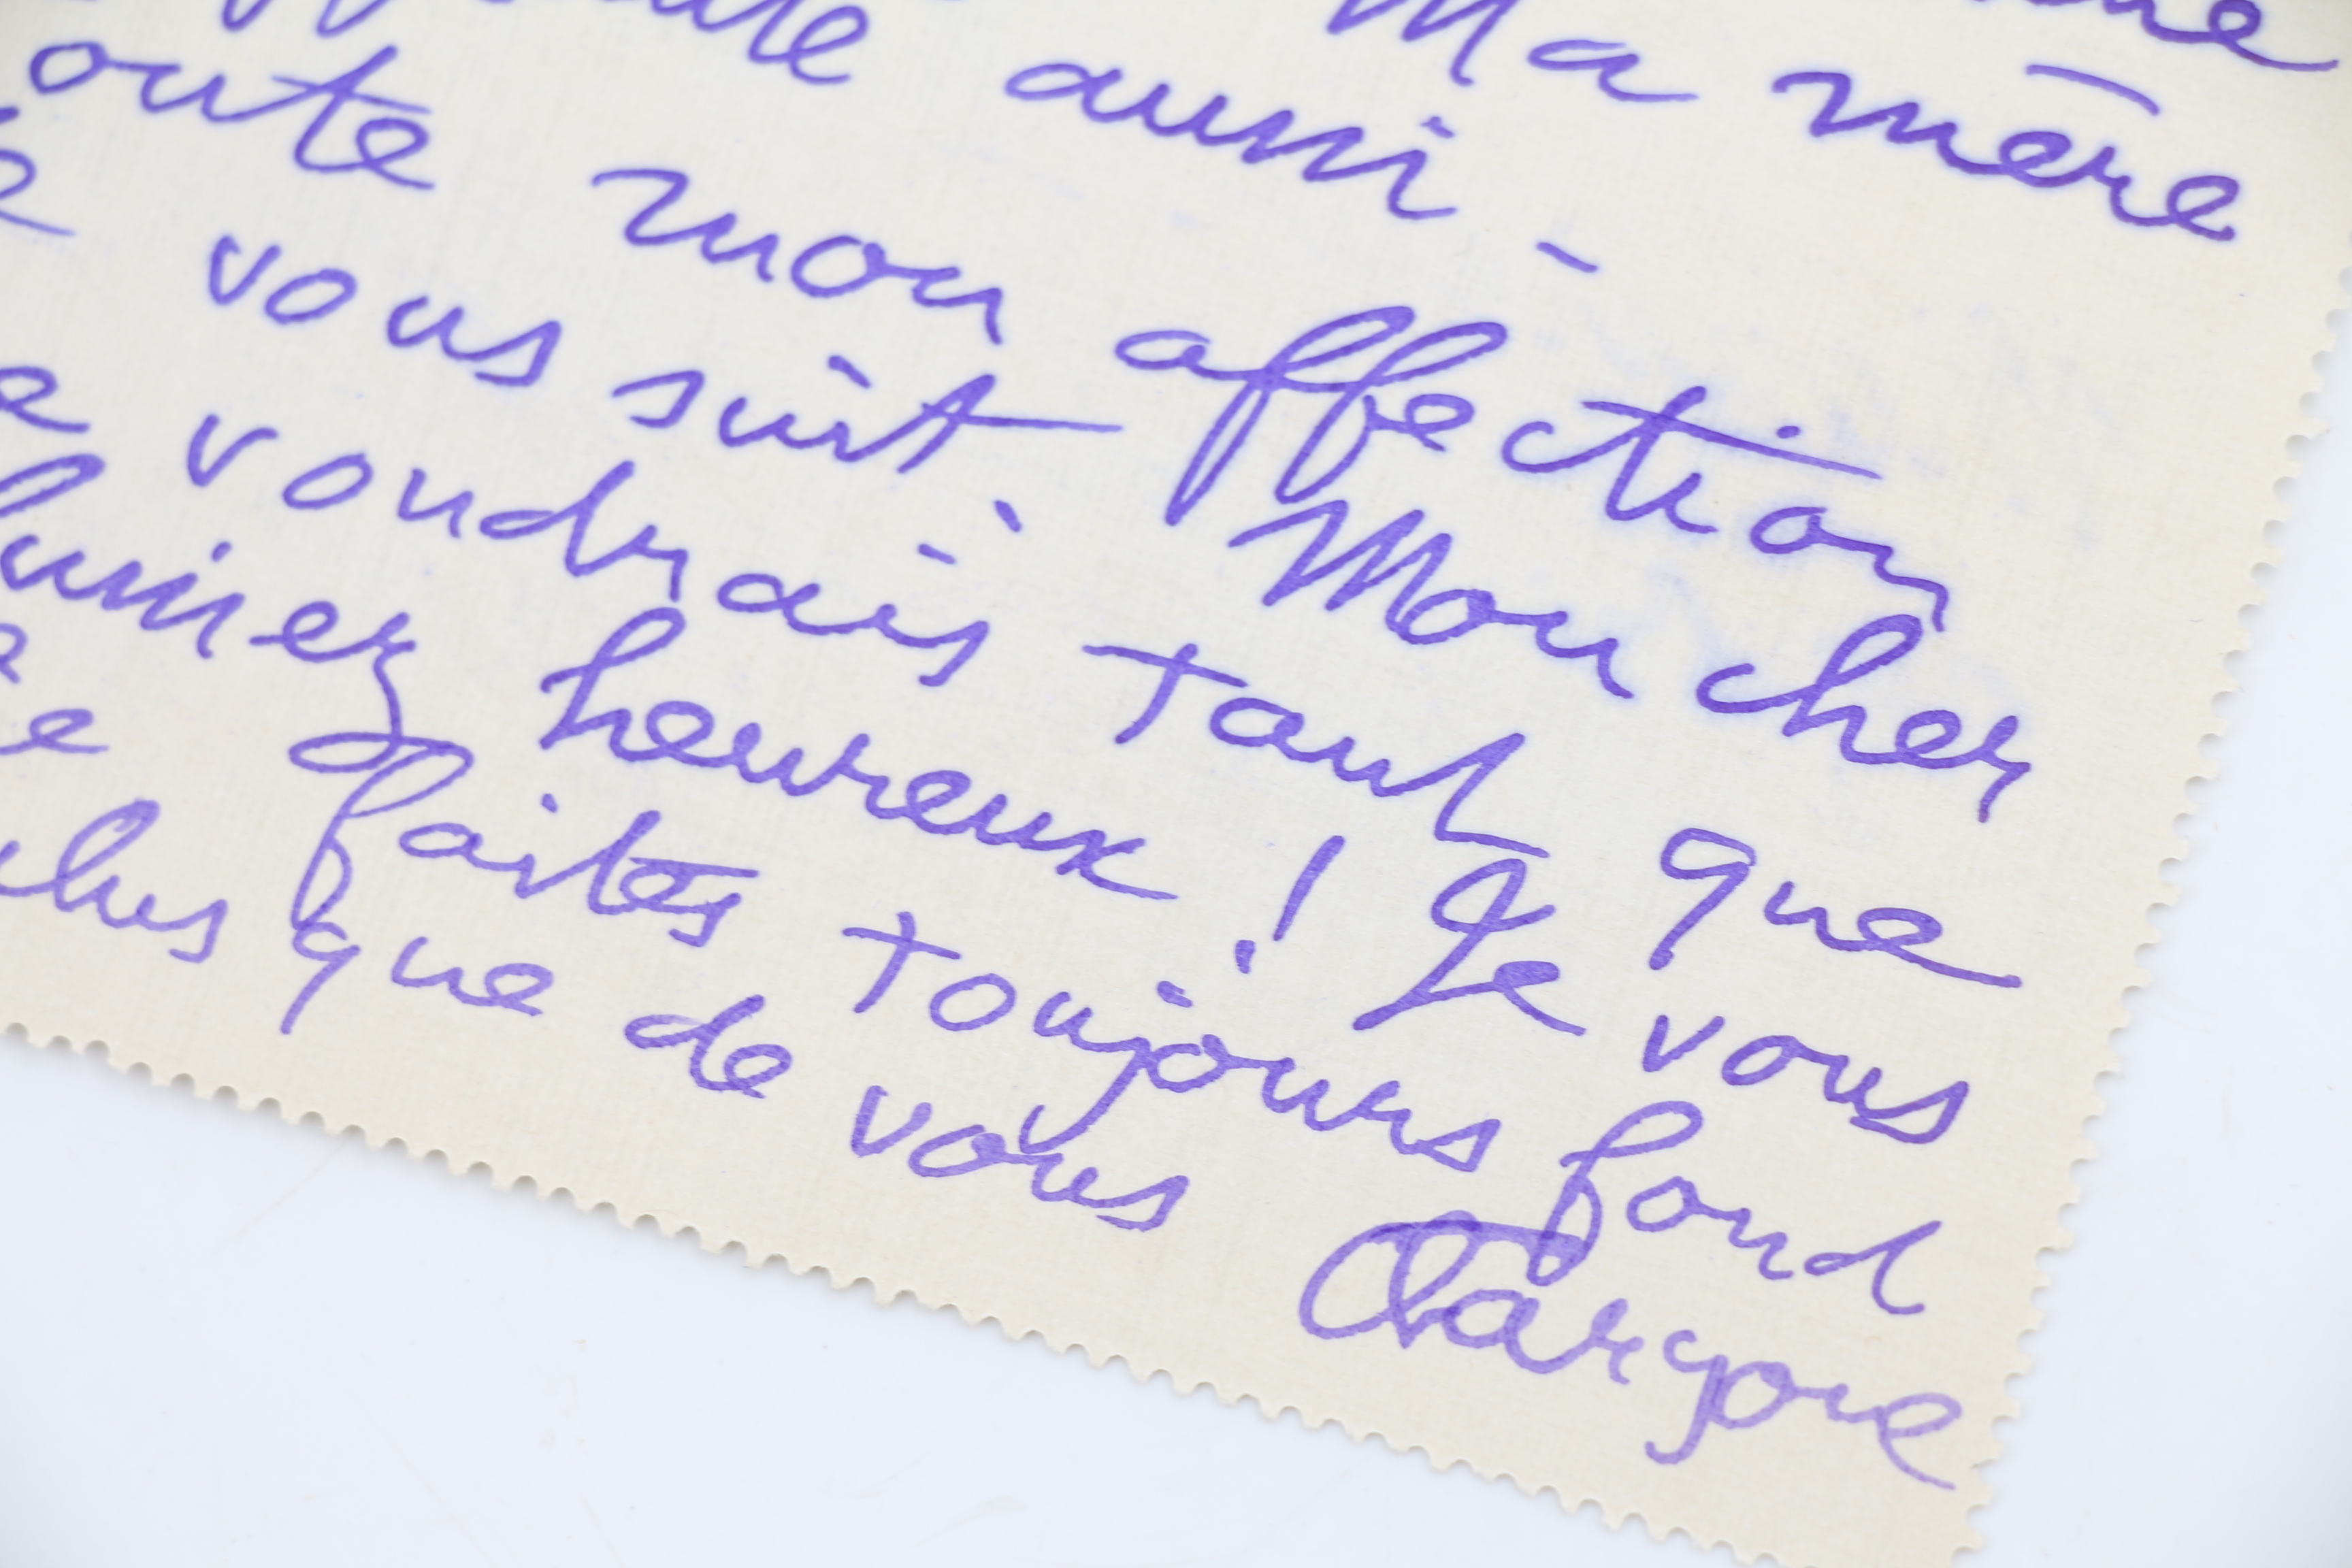 Ma mère
aussi -
mon affection
vous suit. Mon cher
voudrais tant que
heureux ! Je vous
faites toujours fond
que de vous